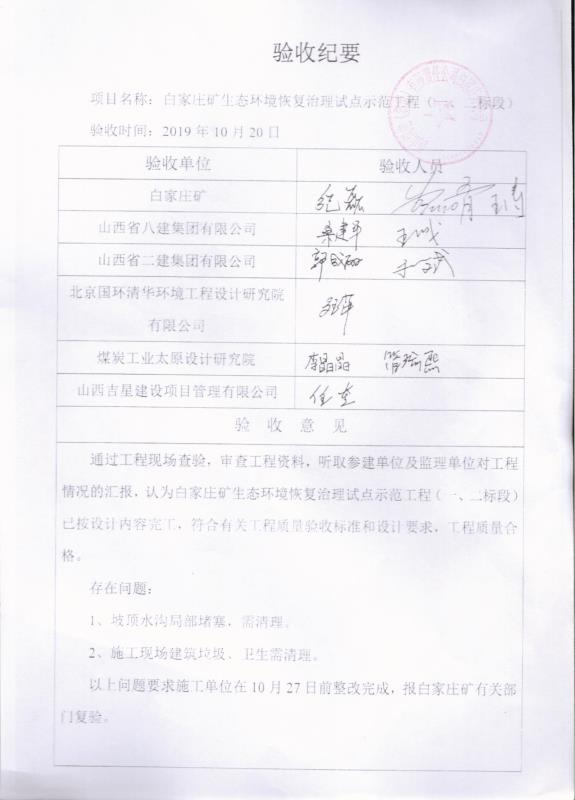 验收纪要
项目名称：白家庄矿生态环境恢复治理试点示范工程（一、二标段）
验收时间：2019年10月20日
验收单位 验收人员
白家庄矿
山西省八建集团有限公司
山西省二建集团有限公司
北京国环清华环境工程设计研究院
有限公司
煤炭工业太原设计研究院 李晶晶
山西吉星建设项目管理有限公司
验 收 意 见
通过工程现场查验，审查工程资料，听取参建单位及监理单位对工程
情况的汇报，认为白家庄矿生态环境恢复治理试点示范工程（一、二标段）
已按设计内容完工，符合有关工程质量验收标准和设计要求，工程质量合
格。
存在问题：
1、坡顶水沟局部堵塞，需清理。
2、施工现场建筑垃圾、卫生需清理。
以上问题要求施工单位在10月27日前整改完成，报白家庄矿有关部
门复验。